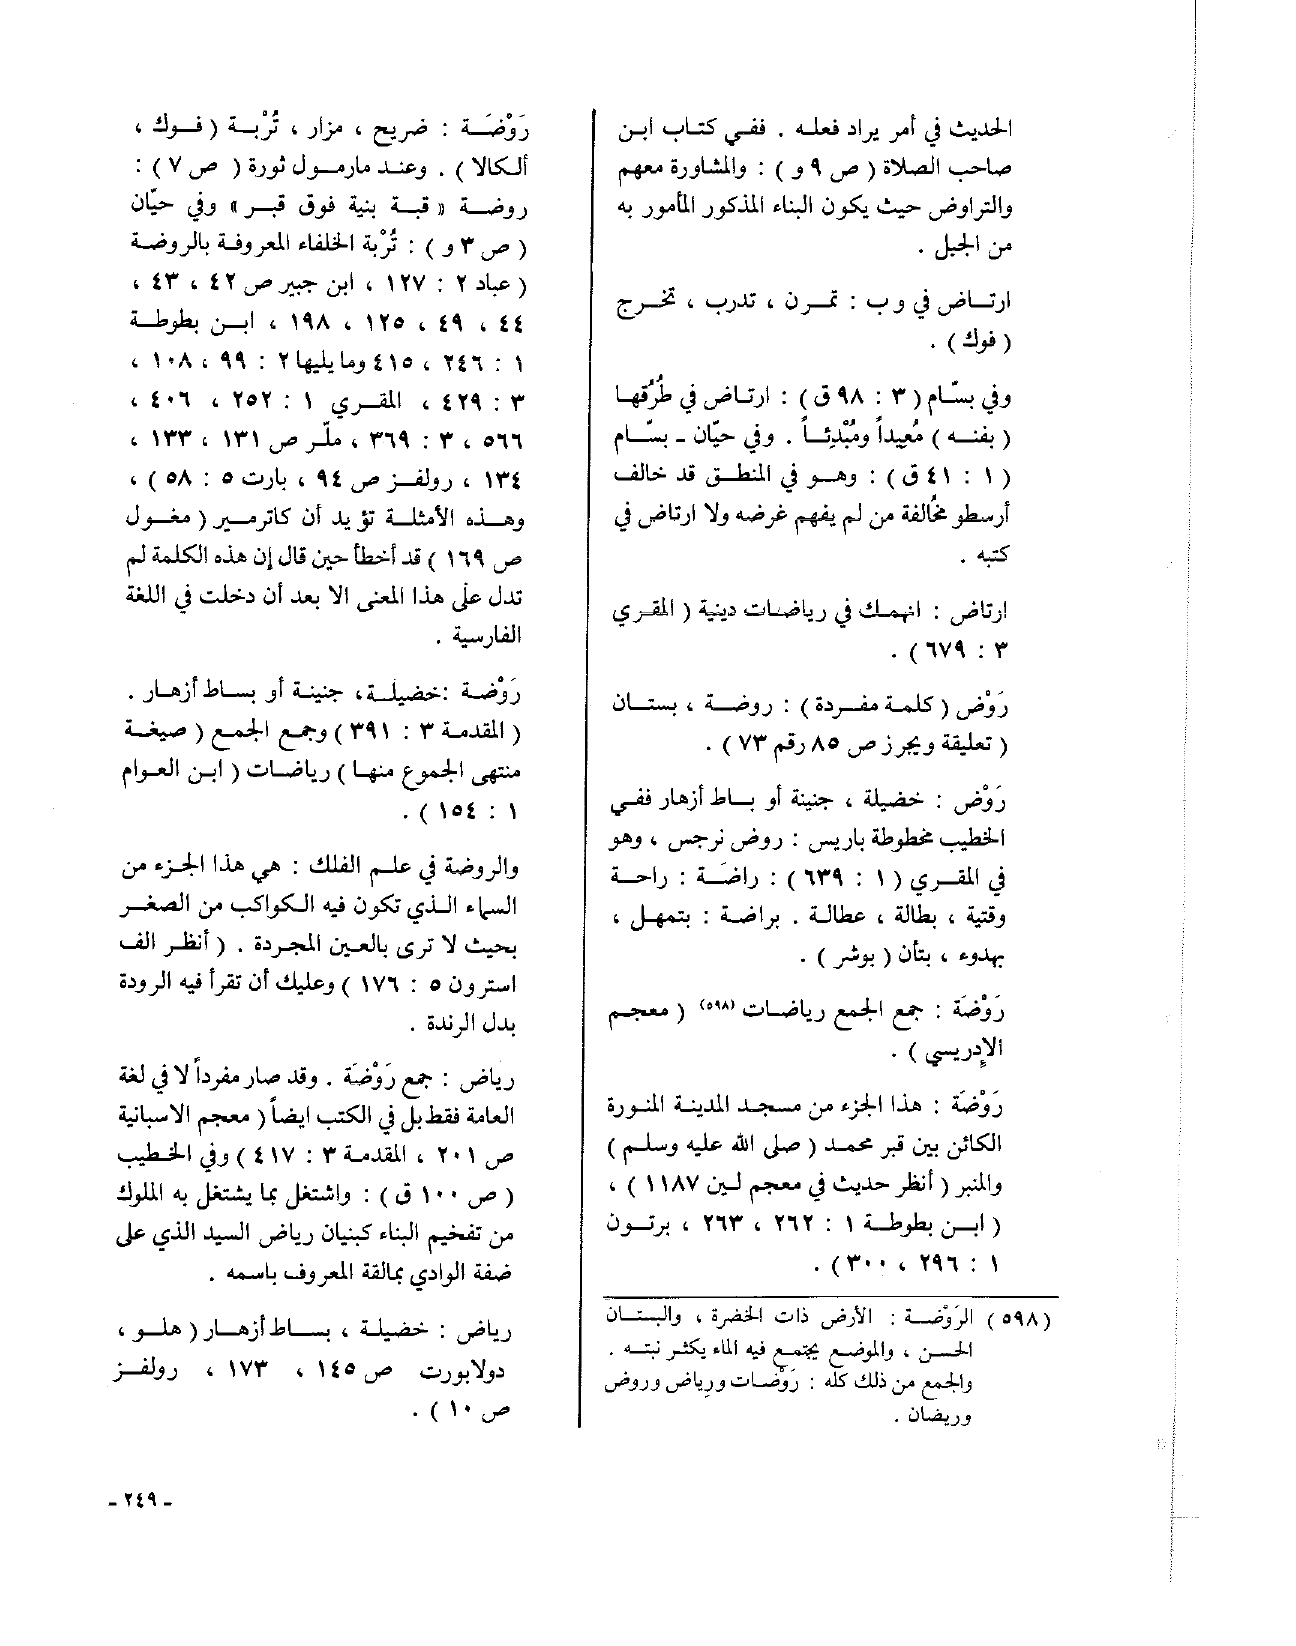 الحديث في أمر يراد فعله . ففي كتاب ابن
صاحب الصلاة ( ص ٩ و ) : والمشاورة معهم
والتراوض حيث يكون البناء المذكور المأمور به
من الجبل .
ارتاض في وب : تمرن ، تدرب ، تخرج
( فوك ) .
وفي بسّام ( ٣ : ٩٨ ق ) : ارتاض في طُرُقها
( بفنه ) مُعيداً ومُبْدِئاً . وفي حيّان ـ بسّام
( ١ : ٤١ ق ) : وهو في المنطق قد خالف
أرسطو مخالفة من لم يفهم غرضه ولا ارتاض في
كتبه .
ارتاض : انهمك في رياضات دينية ( المقري
٣ : ٦٧٩ ) .
رَوْض ( كلمة مفردة ) : روضة ، بستان
( تعليقة ويجرز ص ٨٥ رقم ٧٣ ) .
رَوْض : خضيلة ، جنينة أو بساط أزهار ففي
الخطيب مخطوطة باريس : روض نرجس ، وهو
في المقري ( ١ : ٦٣٩ ) : راضَة : راحة
وقتية ، بطالة ، عطالة . براضة : بتمهل ،
بهدوء ، بتأن ( بوشر ) .
رَوْضَة : جمع الجمع رياضات (٥٩٨) ( معجم
الإدريسي ) .
رَوْضَة : هذا الجزء من مسجد المدينة المنورة
الكائن بين قبر محمد ( صلى الله عليه وسلم )
والمنبر ( أنظر حديث في معجم لين ١١٨٧ ) ،
( ابن بطوطة ١ : ٢٦٢ ، ٢٦٣ ، برتون
١ : ٢٩٦ ، ٣٠٠ ) .
( ٥٩٨ ) الرَوْضة : الأرض ذات الخضرة ، والبستان
الحسن ، والموضع يجتمع فيه الماء يكثر نبته .
والجمع من ذلك كله : رَوْضات ورياض وروض
وريضان .
رَوْضَة : ضريح ، مزار ، تُرْبة ( فوك ،
ألكالا ) . وعند مارمول ثورة ( ص ٧ ) :
روضة « قبة بنية فوق قبر » وفي حيّان
( ص ٣ و ) : تُرْبة الخلفاء المعروفة بالروضة
( عباد ٢ : ١٢٧ ، ابن جبير ص ٤٢ ، ٤٣ ،
٤٤ ، ٤٩ ، ١٢٥ ، ١٩٨ ، ابن بطوطة
١ : ٢٤٦ ، ٤١٥ وما يليها ٢ : ٩٩ ، ١٠٨ ،
٣ : ٤٢٩ ، المقري ١ : ٢٥٢ ، ٤٠٦ ،
٥٦٦ ، ٣ : ٣٦٩ ، ملّر ص ١٣١ ، ١٣٣ ،
١٣٤ ، رولفز ص ٩٤ ، بارت ٥ : ٥٨ ) ،
وهذه الأمثلة تؤيد أن كاترمير ( مغول
ص ١٦٩ ) قد أخطأ حين قال إن هذه الكلمة لم
تدل على هذا المعنى الا بعد أن دخلت في اللغة
الفارسية .
رَوْضة : خضيلة ، جنينة أو بساط أزهار .
( المقدمة ٣ : ٣٩١ ) وجمع الجمع ( صيغة
منتهى الجموع منها ) رياضات ( ابن العوام
١ : ١٥٤ ) .
والروضة في علم الفلك : هي هذا الجزء من
السماء الذي تكون فيه الكواكب من الصغر
بحيث لا ترى بالعين المجردة . ( أنظر الف
استرون ٥ : ١٧٦ ) وعليك أن تقرأ فيه الرودة
بدل الرندة .
رياض : جمع رَوْضَة . وقد صار مفرداً لا في لغة
العامة فقط بل في الكتب ايضاً ( معجم الاسبانية
ص ٢٠١ ، المقدمة ٣ : ٤١٧ ) وفي الخطيب
( ص ١٠٠ ق ) : واشتغل بما يشتغل به الملوك
من تفخيم البناء كبنيان رياض السيد الذي على
ضفة الوادي بمالقة المعروف باسمه .
رياض : خضيلة ، بساط أزهار ( هلو ،
دولابورت ص ١٤٥ ، ١٧٣ ، رولفز
ص ١٠ ) .
ـ ٢٤٩ ـ